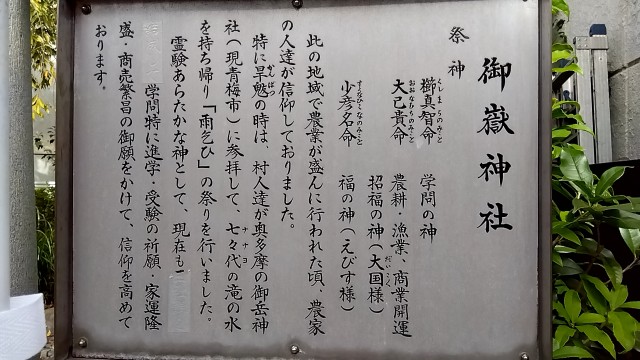 御嶽神社
祭神
櫛真智命 学問の神
くしまちのみこと
大己貴命 農耕・漁業、商業開運
おおなむちのみこと
招福の神(大国様)
だいこく
少彦名命 福の神(えびす様)
すくなひこなのみこと
此の地域で農業が盛んに行われた頃、農家
の人達が信仰しておりました。
特に旱魃の時は、村人達が奥多摩の御岳神
かんばつ
社(現青梅市)に参拝して、七々代の滝の水
ナナヨ
を持ち帰り「雨乞ひ」の祭りを行いました。
霊験あらたかな神として、現在も
学問特に進学・受験の祈願・家運隆
盛・商売繁昌の御願をかけて、信仰を高めて
おります。